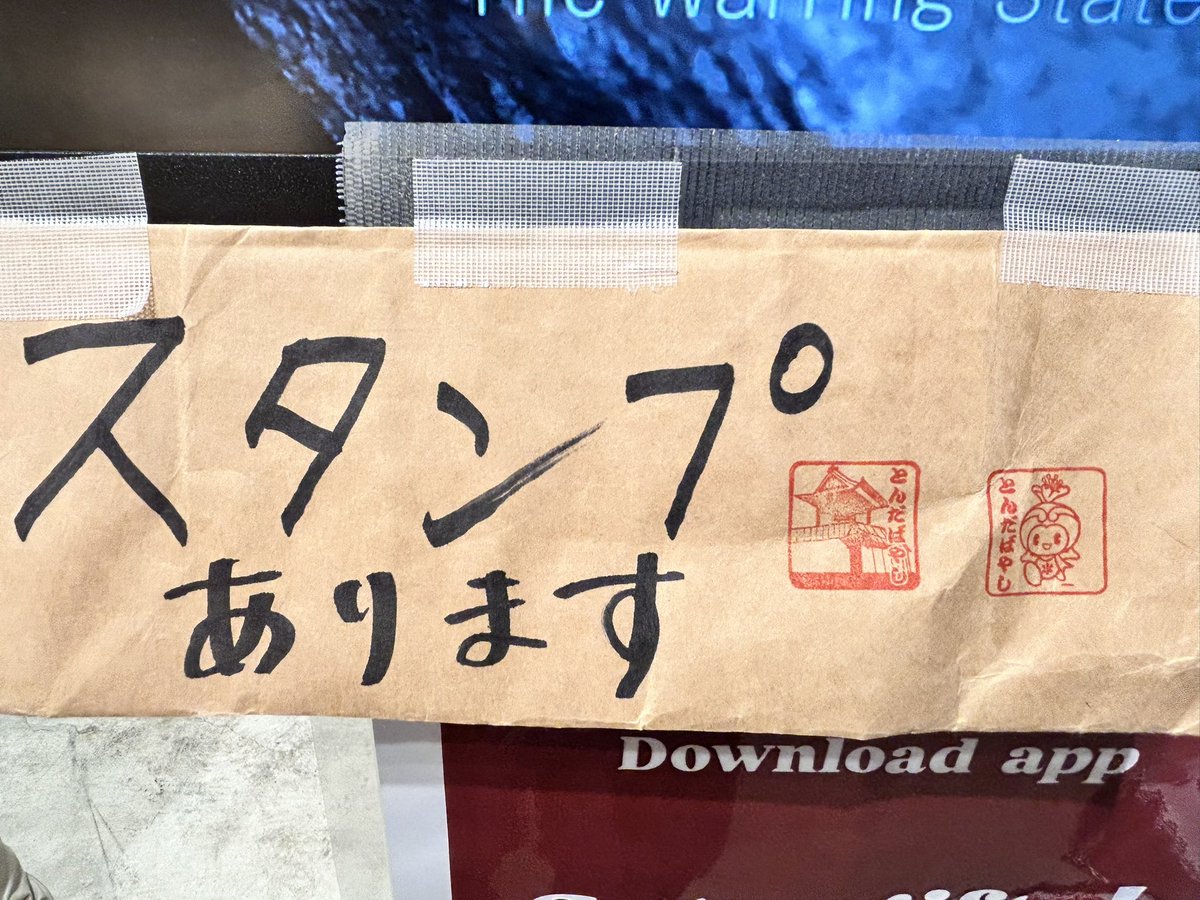 The Warring State
スタンプ
あります
とんだばやし
とんだばやし
Download app